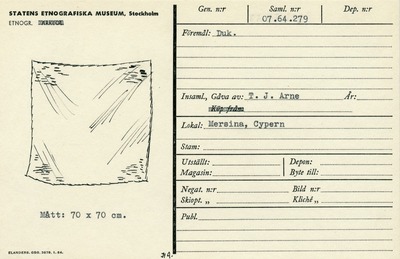 STATENS ETNOGRAFISKA MUSEUM, Stockholm
ETNOGR.
Mått: 70 x 70 cm.
Gen. n:r Saml. n:r Dep. n:r
07.64.279
Föremål: Duk.
Insaml., Gåva av: T. J. Arne År:
Köp från
Lokal: Mersina, Cypern
Stam:
Utställt: Depon:
Magasin: Byte till:
Negat. n:r Bild n:r
Skiopt. „ Kliché „
Publ.